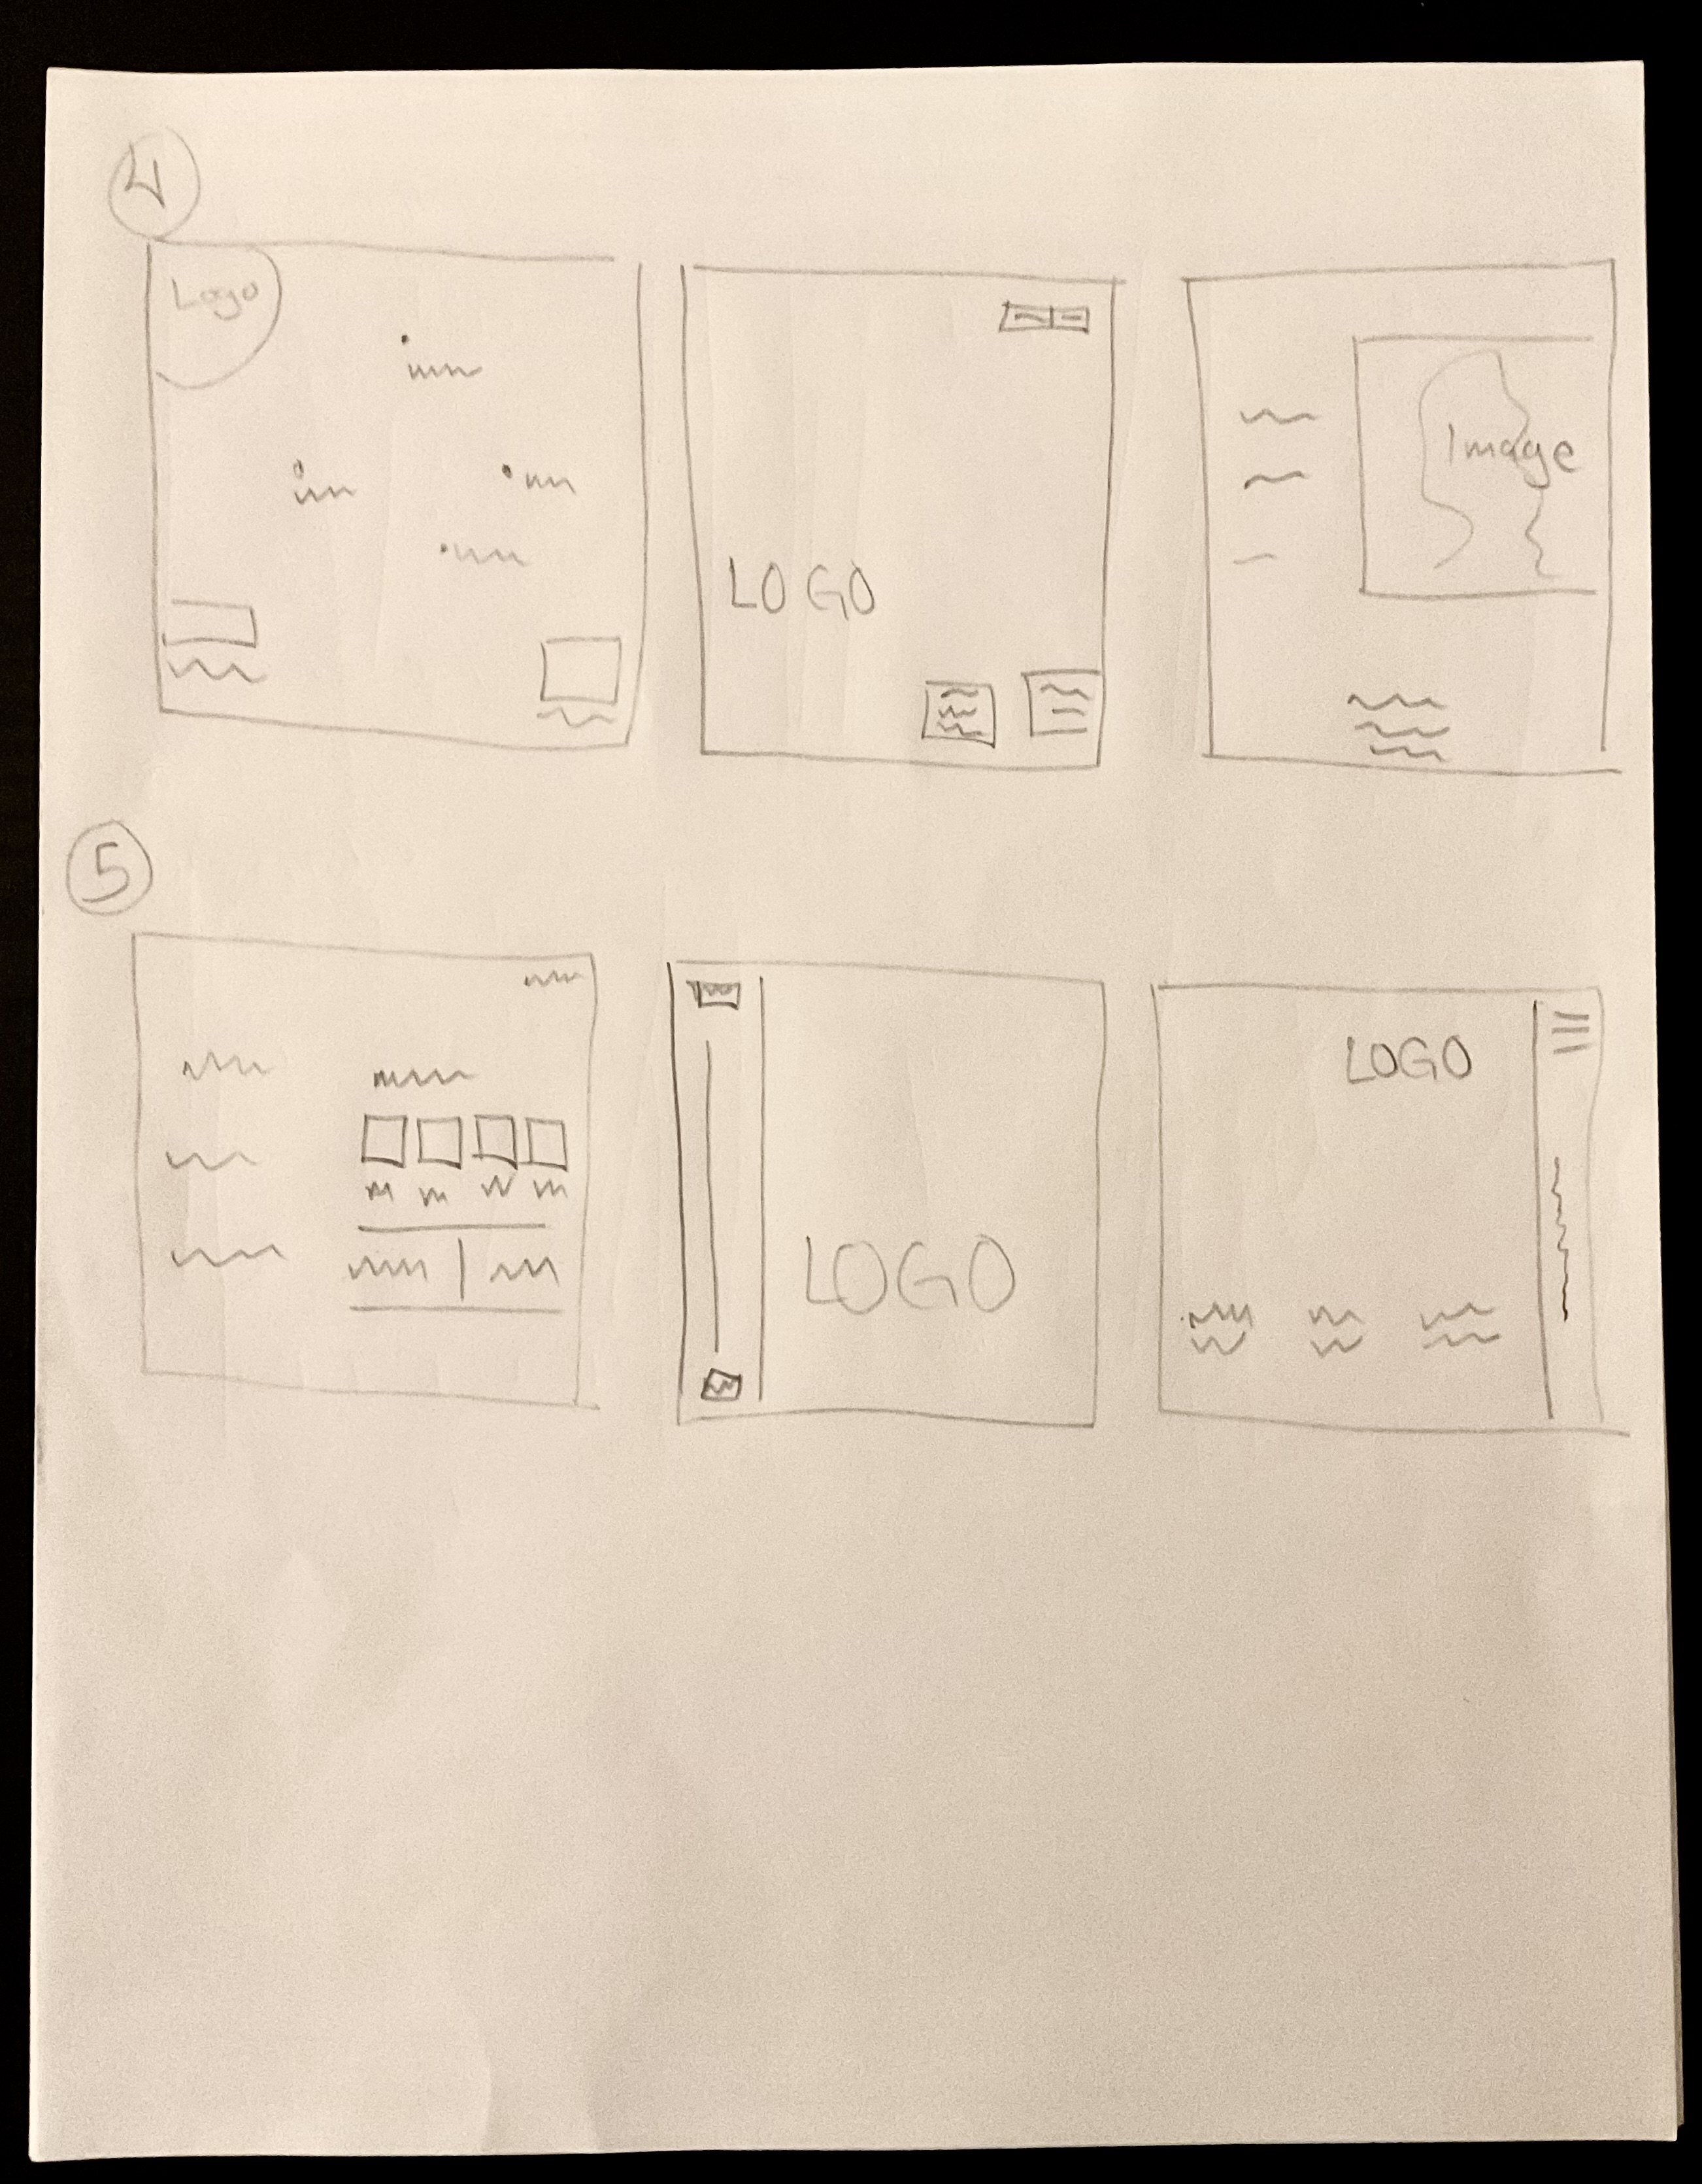 4
Logo
LOGO
Image
5
LOGO
LOGO